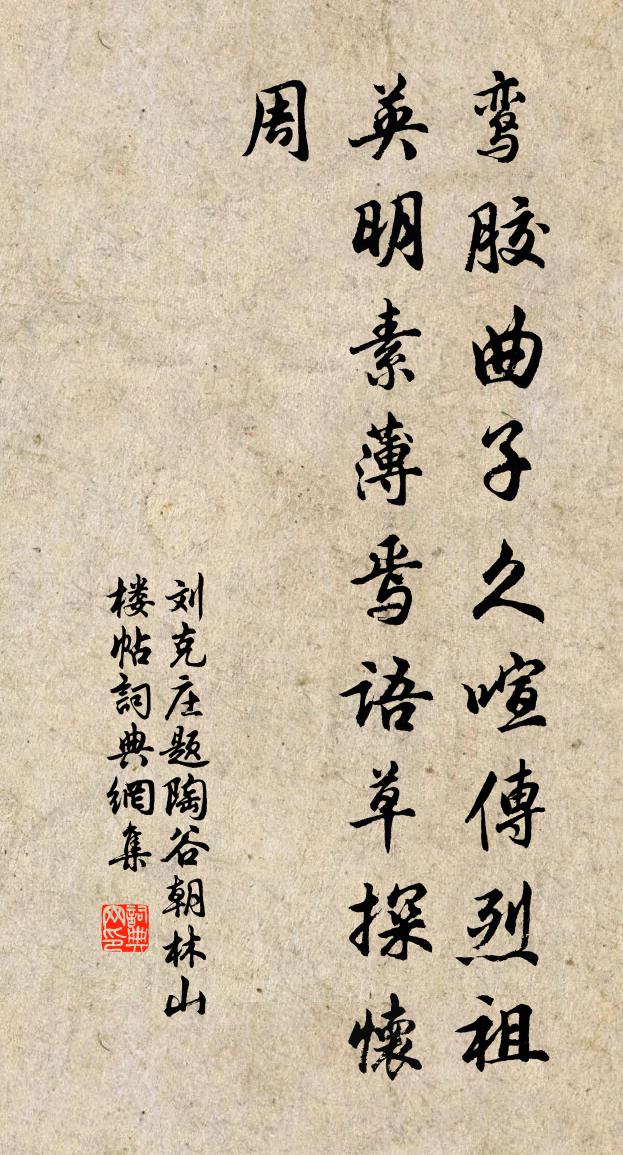 鸾胶曲子久喧傳烈祖
英明素薄焉语草探懷
周
刘克庄题陶谷朝林山
楼帖詞典網集
詞典网印